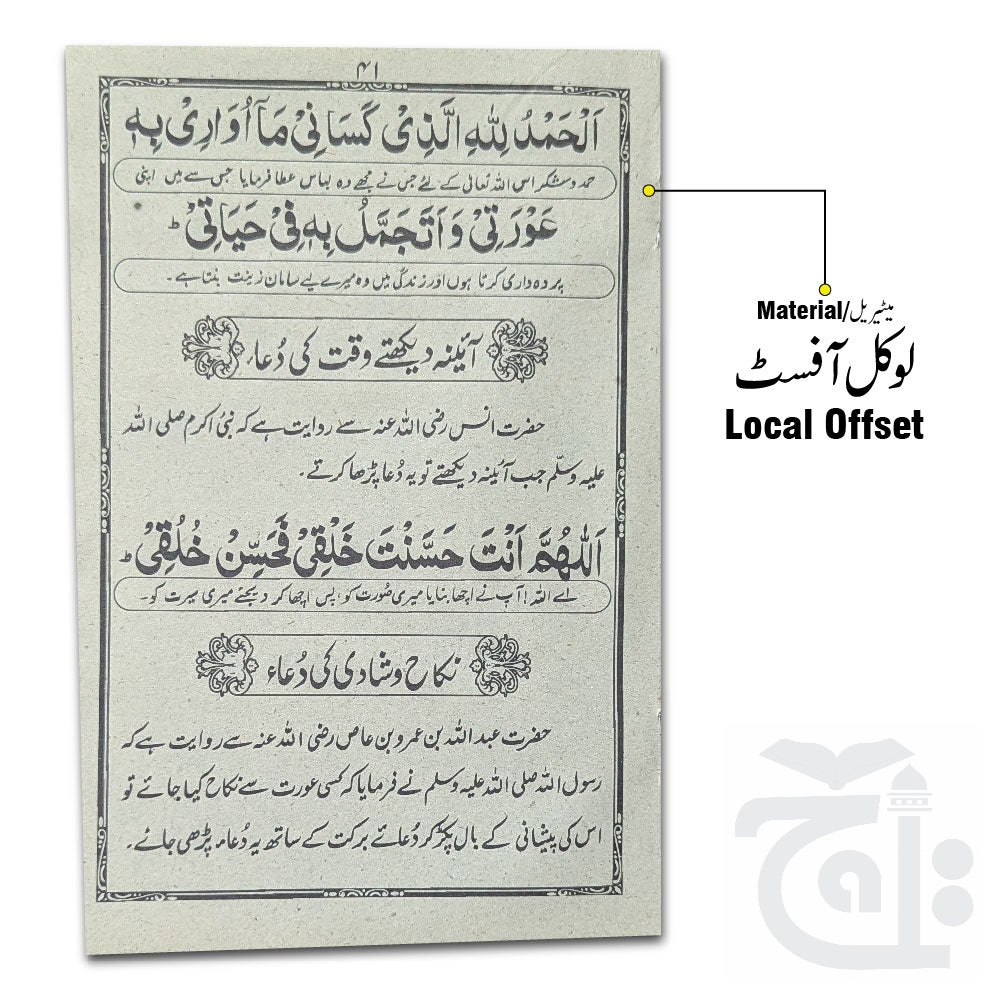 ۴۱
اَلْحَمْدُ لِلّٰهِ الَّذِیْ كَسَانِیْ مَآ اُوَارِیْ بِهٖ
حمد و شکر اس اللہ تعالیٰ کے لئے جس نے مجھے وہ لباس عطا فرمایا جس سے میں اپنی
عَوْرَتِیْ وَ اَتَجَمَّلُ بِهٖ فِیْ حَیَاتِیْ ؕ
پردہ داری کرتا ہوں اور زندگی میں وہ میرے لیے سامان زینت بنتا ہے ۔
آئینہ دیکھتے وقت کی دُعا
حضرت انس رضی اللہ عنہ سے روایت ہے کہ نبیٔ اکرم صلی اللہ
علیہ وسلّم جب آئینہ دیکھتے تو یہ دُعا پڑھا کرتے ۔
اَللّٰهُمَّ اَنْتَ حَسَّنْتَ خَلْقِیْ فَحَسِّنْ خُلُقِیْ ؕ
اے اللہ ! آپ نے اچھا بنایا میری صُورت کو ، پس اچھا کر دیجئے میری سیرت کو ۔
نکاح و شادی کی دُعاء
حضرت عبد اللہ بن عمرو بن عاص رضی اللہ عنہ سے روایت ہے کہ
رسول اللہ صلی اللہ علیہ وسلم نے فرمایا کہ کسی عورت سے نکاح کیا جائے تو
اس کی پیشانی کے بال پکڑ کر دُعائے برکت کے ساتھ یہ دُعاء پڑھی جائے ۔
Material/میٹیریل
لوکل آفسٹ
Local Offset